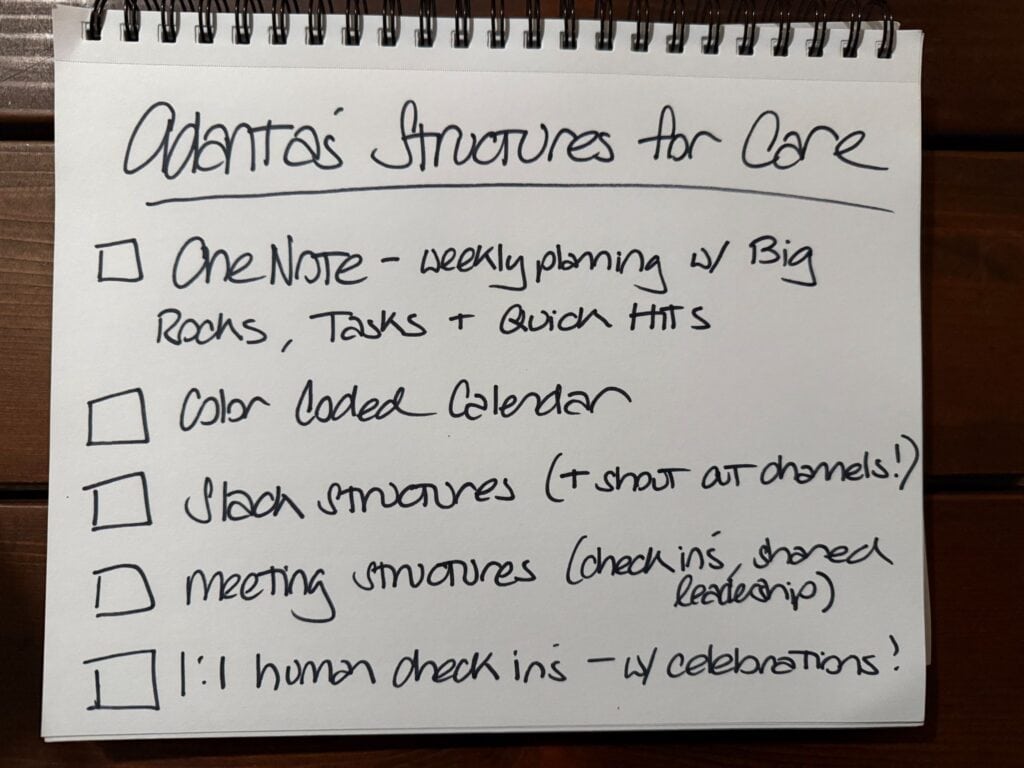 Adanta's Structures for Care
OneNote - weekly planning w/ Big
Rocks, Tasks + Quick Hits
Color Coded Calendar
Slack structures (+ shout out channels!)
meeting structures (check in's, shared
leadership)
1:1 human check in's - w/ celebrations!